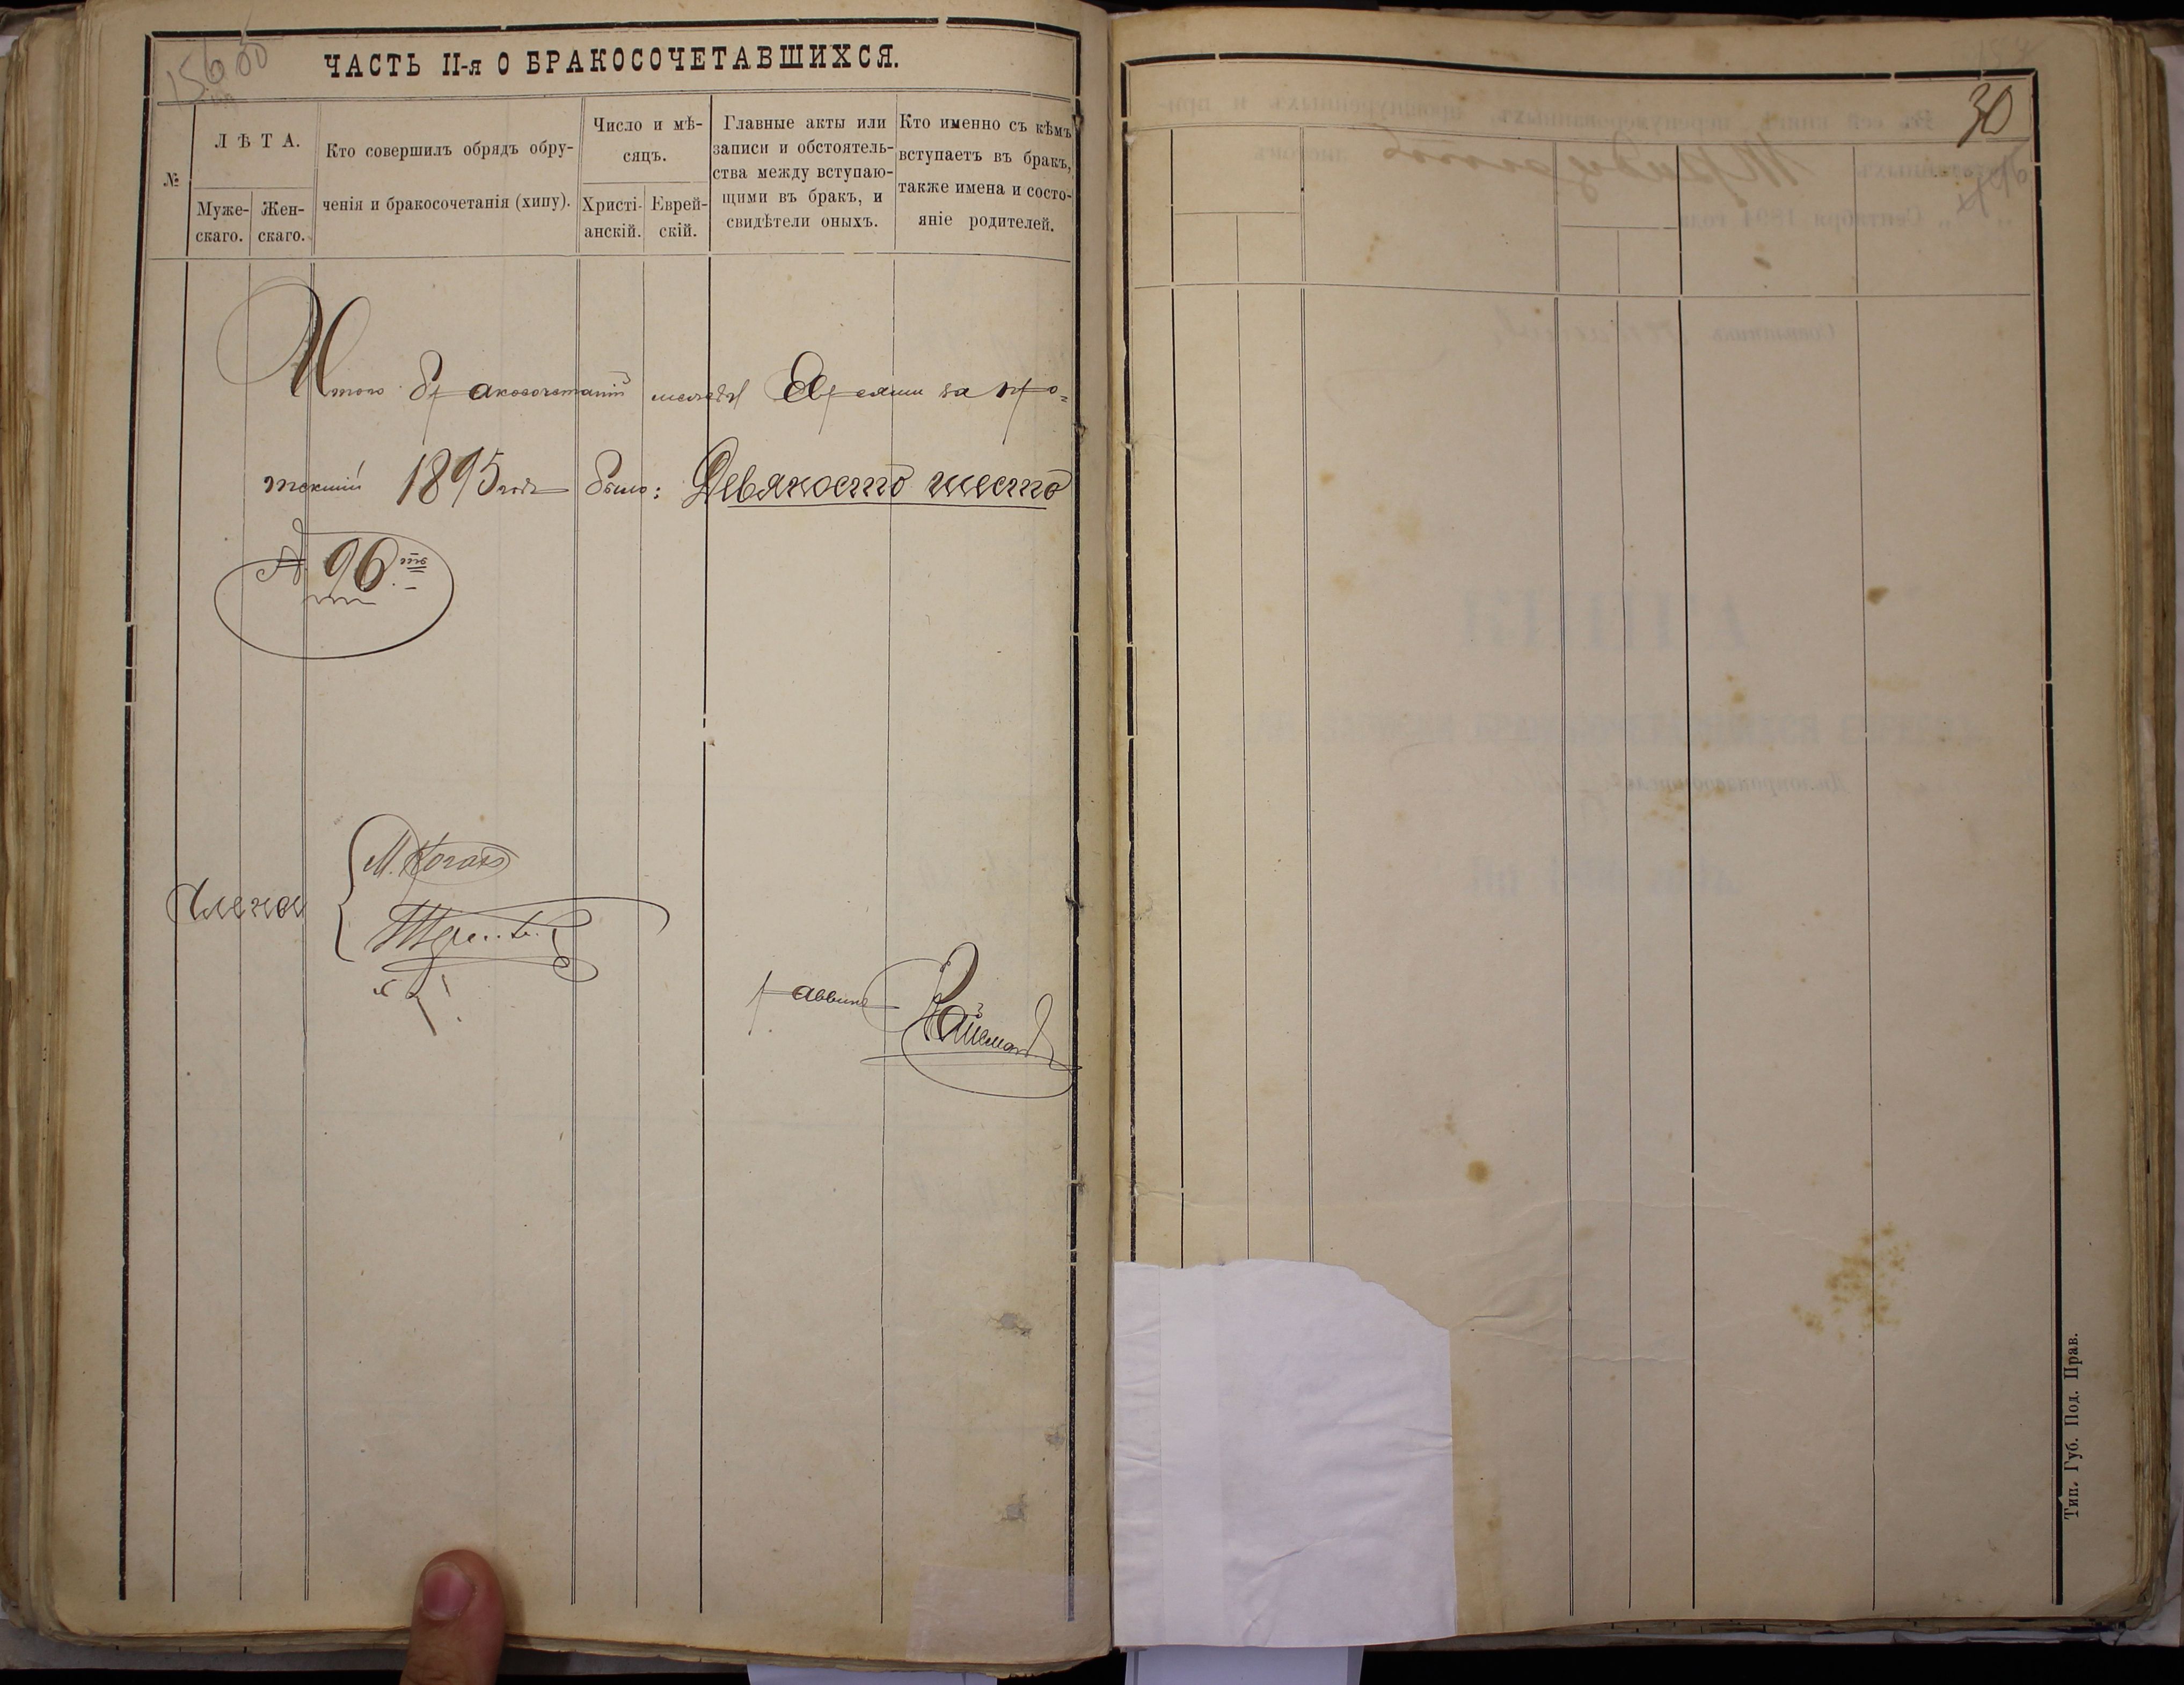 ЧАСТЬ II-я О БРАКОСОЧЕТАВШИХСЯ.
№
ЛѢТА.
Муже-
скаго.
Жен-
скаго.
Кто совершилъ обрядъ обру-
ченія и бракосочетанія (хипу).
Число и мѣ-
сяцъ.
Христі-
анскій.
Еврей-
скій.
Главные акты или
записи и обстоятель-
ства между вступаю-
щими въ бракъ, и
свидѣтели оныхъ.
Кто именно съ кѣмъ
вступаетъ въ бракъ,
также имена и состо-
яніе родителей.
Итого бракосочетаній между Евреями за про=
текшій 1895 годъ было: Девяносто шесть
№ 96
Члены
М. Коганъ
раввинъ
30
Тип. Губ. Под. Прав.